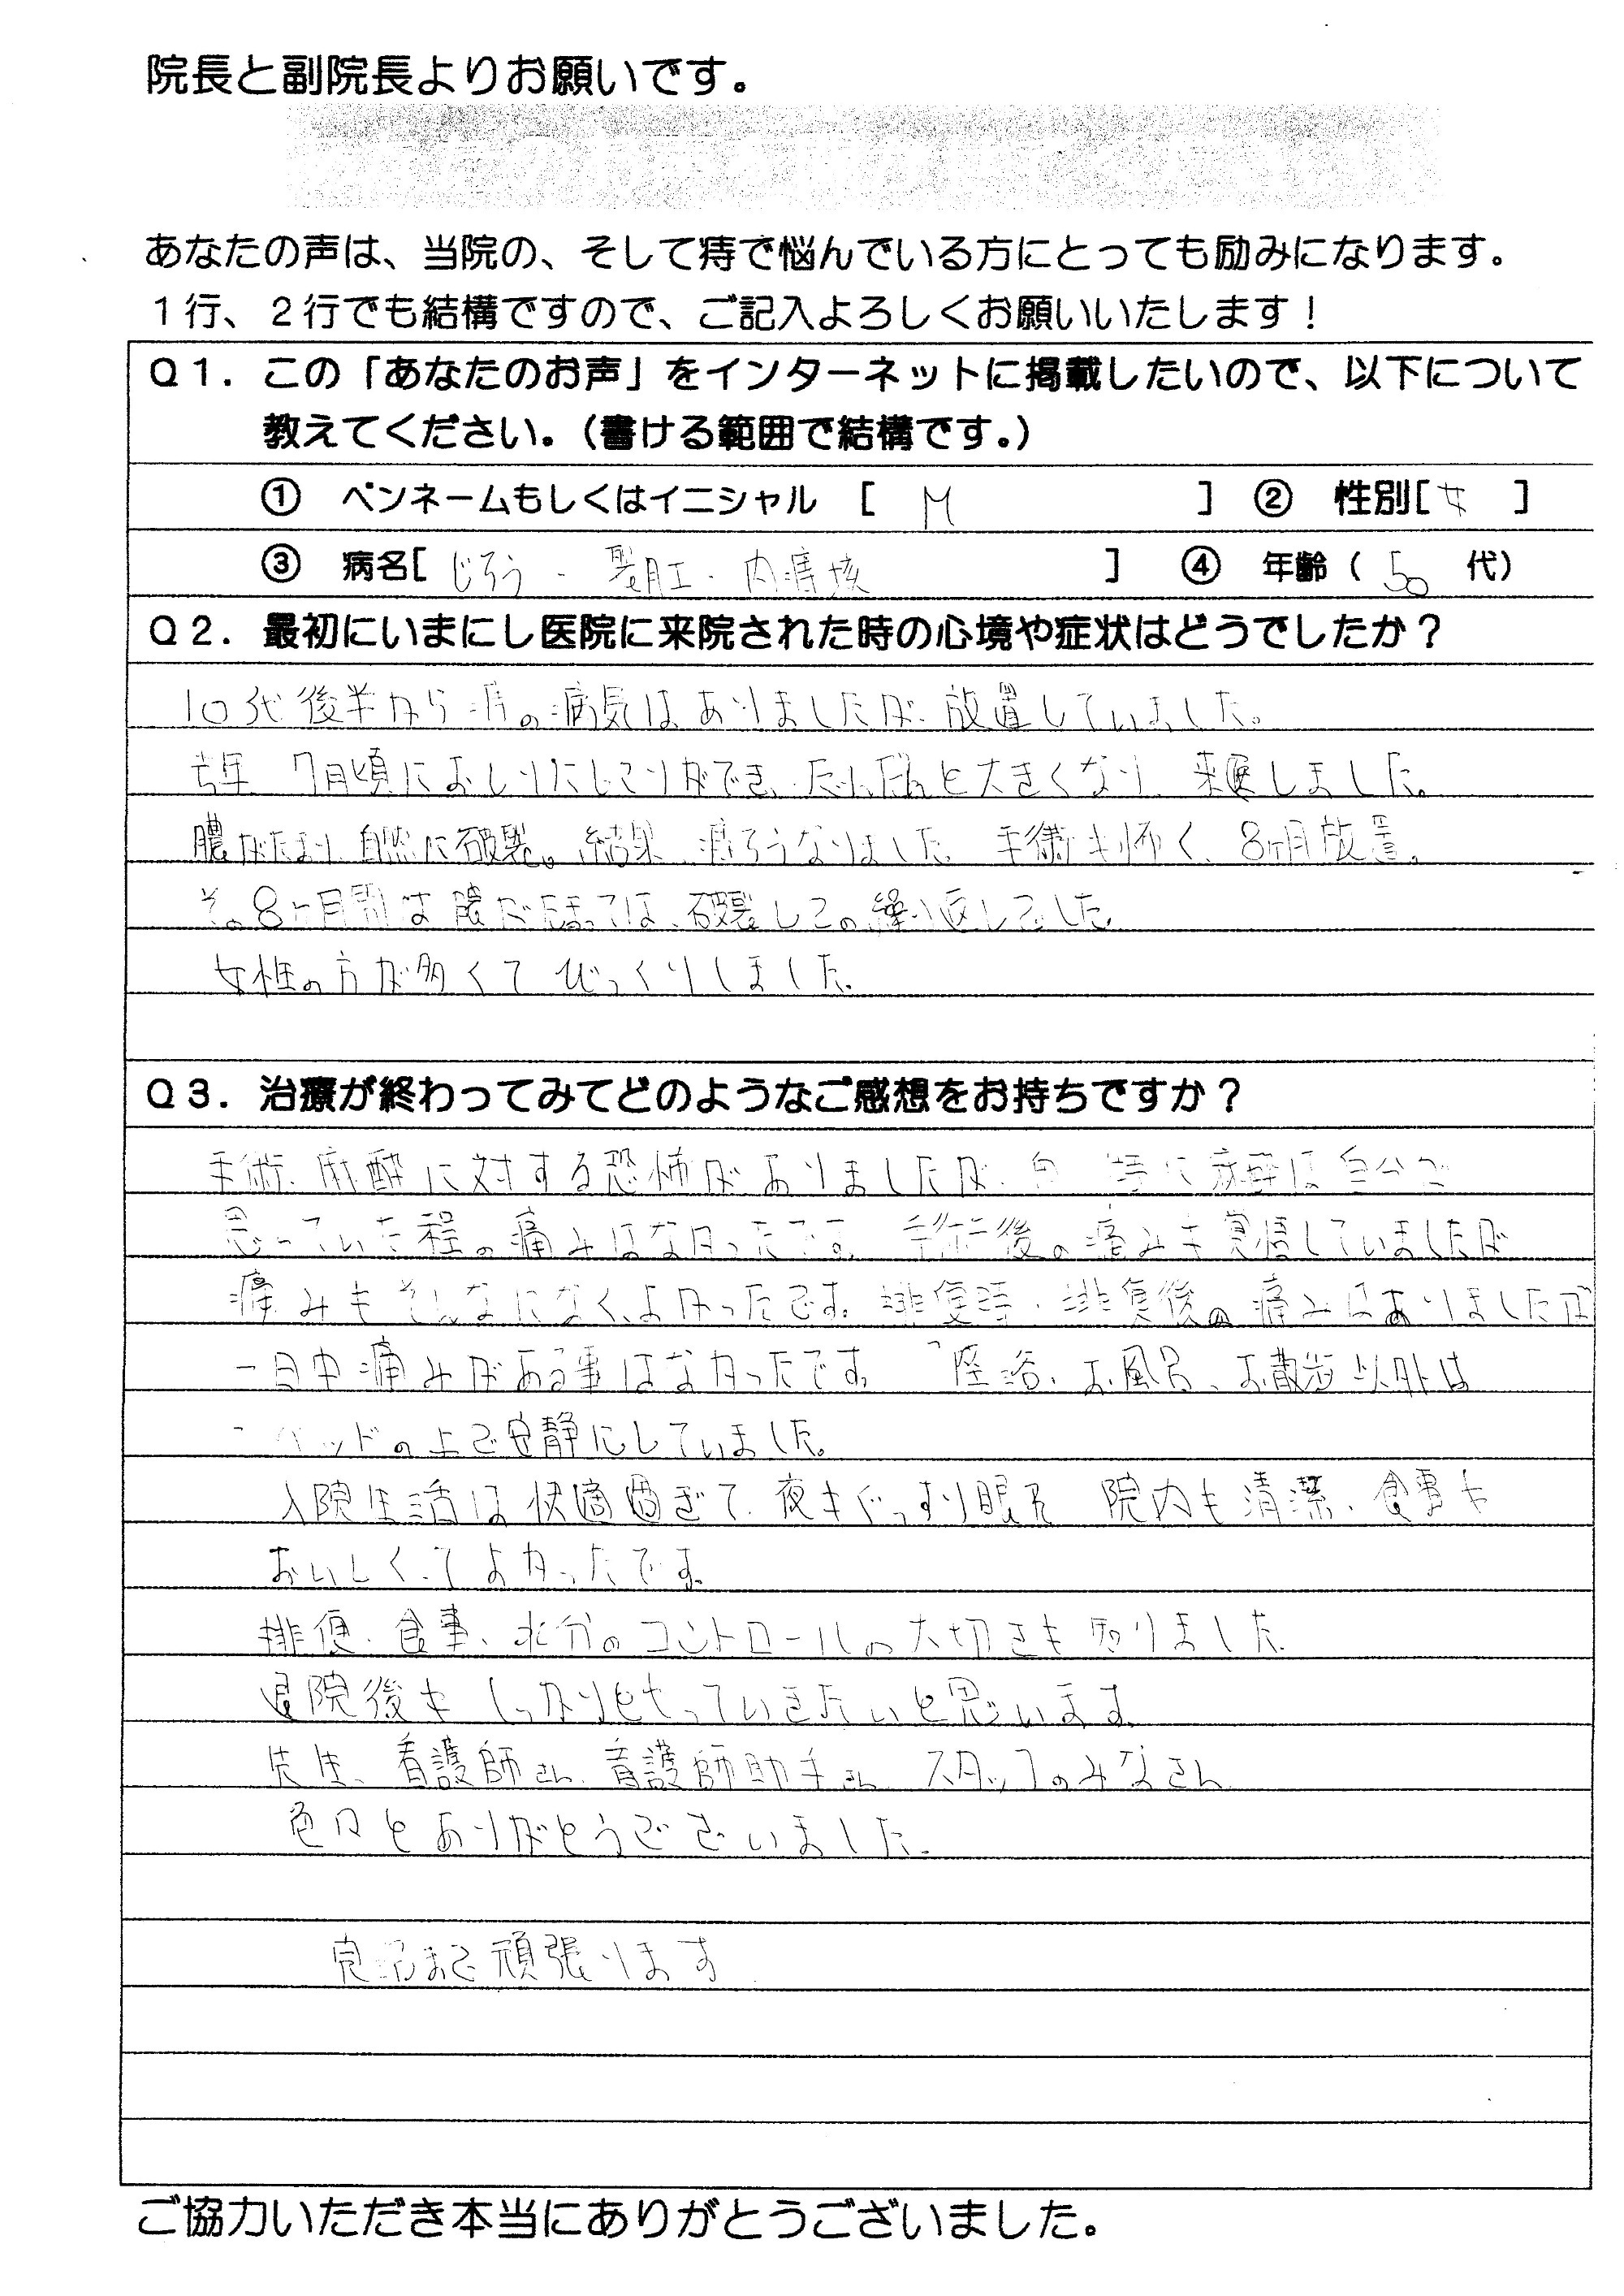 院長と副院長よりお願いです。
あなたの声は、当院の、そして痔で悩んでいる方にとっても励みになります。
1行、2行でも結構ですので、ご記入よろしくお願いいたします！
Q1．この「あなたのお声」をインターネットに掲載したいので、以下について
教えてください。（書ける範囲で結構です。）
① ペンネームもしくはイニシャル [ M ] ② 性別[ 女 ]
③ 病名[ じろう・裂肛・内痔核 ] ④ 年齢（ 50 代）
Q2．最初にいまにし医院に来院された時の心境や症状はどうでしたか？
10代後半から痔の病気はありましたが、放置していました。
去年 7月頃におしりにしこりができ、だんだんと大きくなり、来院しました。
膿がたまり、自然に破裂。結果、痔ろうなりました。手術も怖く、8ヶ月放置。
その8ヶ月間は膿がたまっては、破裂しての繰り返しでした。
女性の方が多くてびっくりしました。
Q3．治療が終わってみてどのようなご感想をお持ちですか？
手術、麻酔に対する恐怖がありましたが、 特に麻酔は自分で
思っていた程の痛みはなかったです。手術後の痛みも覚悟していましたが
痛みもそんなになく、よかったです。排便時、排便後の痛みはありましたが
一日中痛みがある事はなかったです。 座浴、お風呂、お散歩以外は
ベッドの上で安静にしていました。
入院生活は快適過ぎて、夜もぐっすり眠え 院内も清潔、食事も
おいしくってよかったです。
排便、食事、水分のコントロールの大切さも知りました。
退院後も しっかりともっていきたいと思います。
先生、看護師さん、看護師助手さん スタッフのみなさん
色々とありがとうございました。
完治まで頑張ります
ご協力いただき本当にありがとうございました。